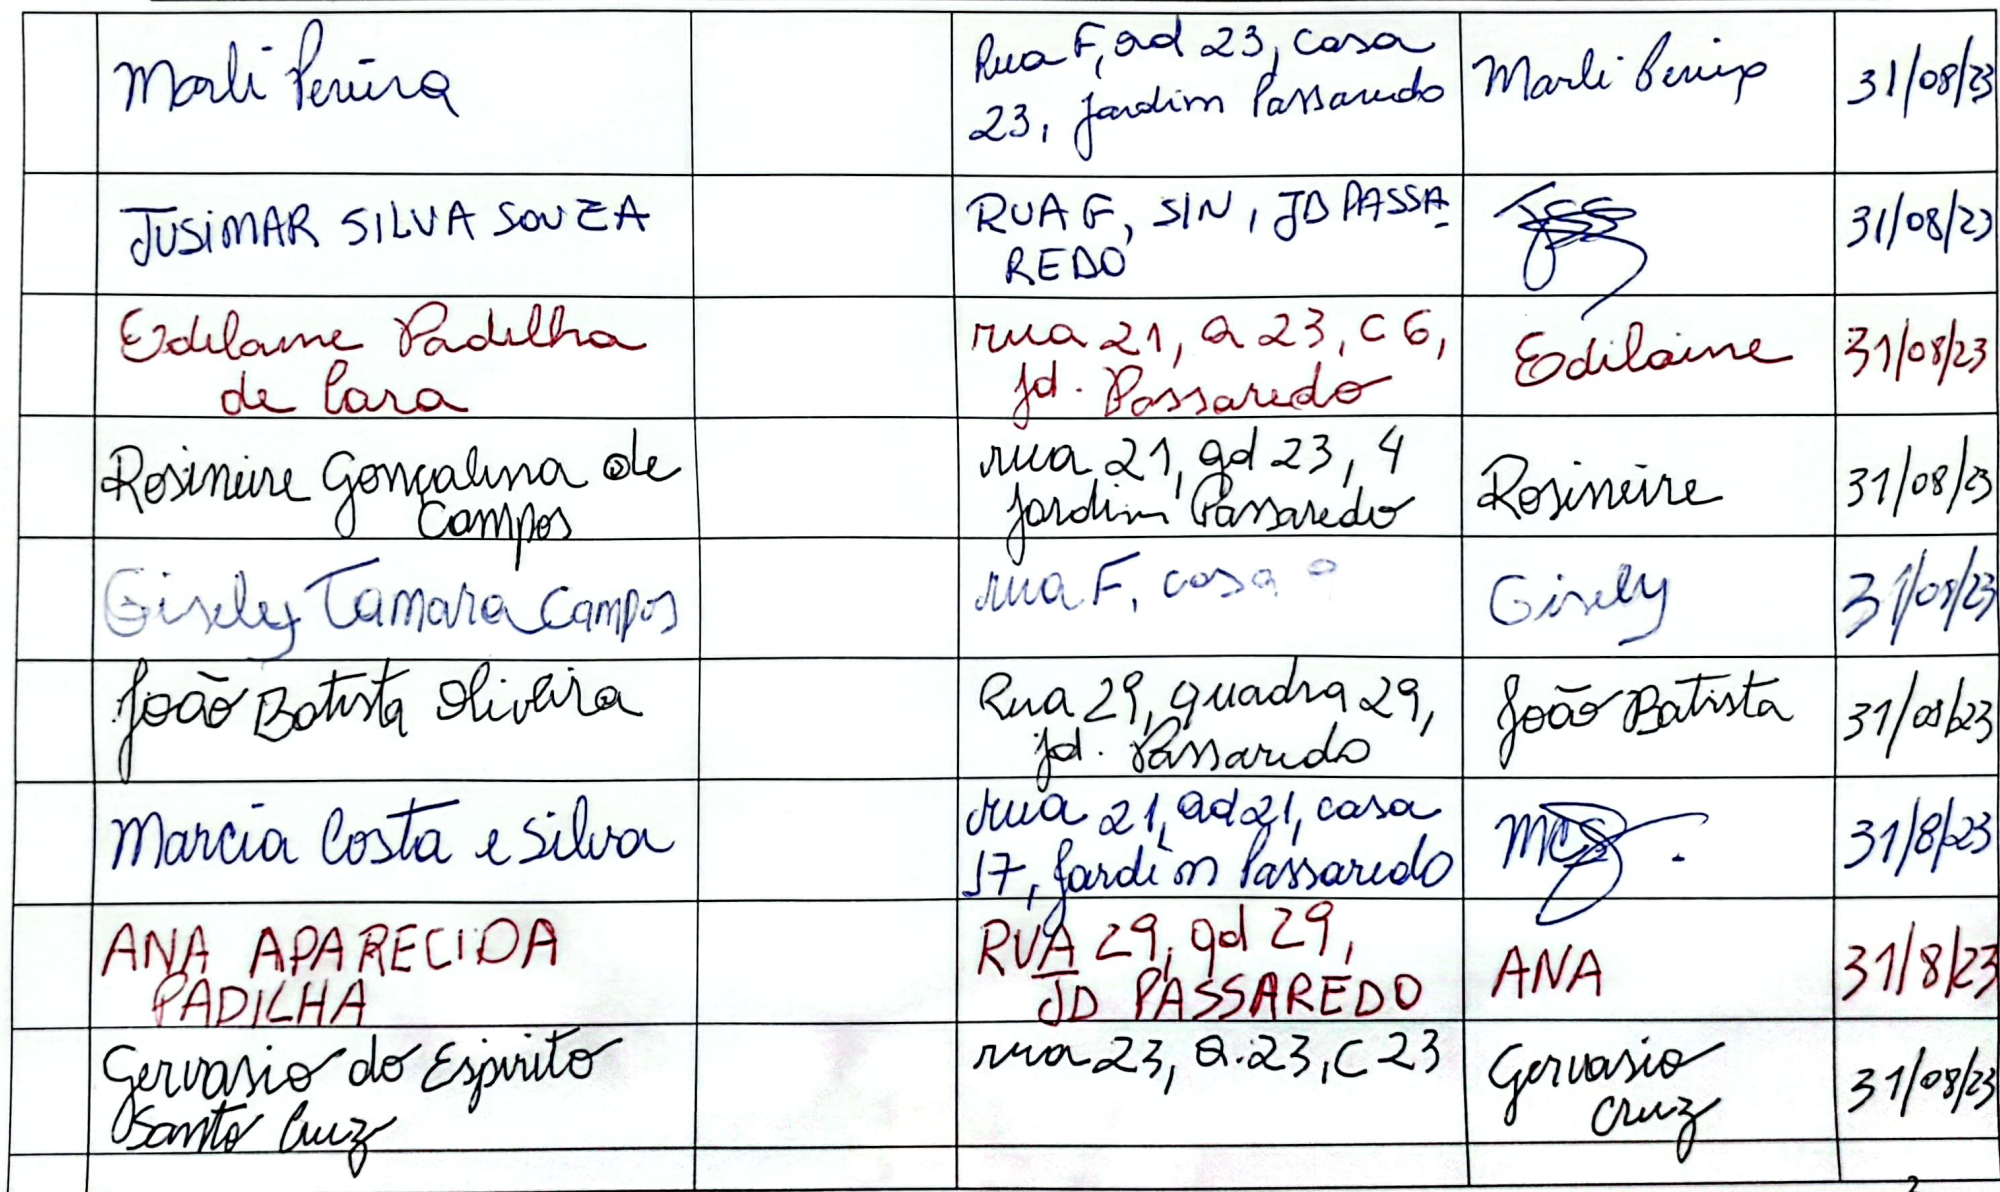 Marli Pereira
Rua F, Qd 23, casa
23, Jardim Passaredo
Marli Pereira
31/08/23
JUSIMAR SILVA SOUZA
RUA F, S/N, JD PASSA-
REDO
31/08/23
Edilaine Padilha
de Lara
rua 21, Q 23, C 6,
jd. Passaredo
Edilaine
31/08/23
Rosineire Gonçalina de
Campos
rua 21, qd 23, 4
Jardim Passaredo
Rosineire
31/08/23
Gisely Tamara Campos
rua F, casa
Gisely
31/08/23
João Batista Oliveira
Rua 29, quadra 29,
jd. Passaredo
João Batista
31/08/23
Marcia Costa e Silva
rua 21, Qd 21, casa
17, Jardim Passaredo
MCS
31/8/23
ANA APARECIDA
PADILHA
RUA 29, qd 29,
JD PASSAREDO
ANA
31/8/23
Gervasio do Espirito
Santo Cruz
rua 23, Q.23, C 23
Gervasio
Cruz
31/08/23
2